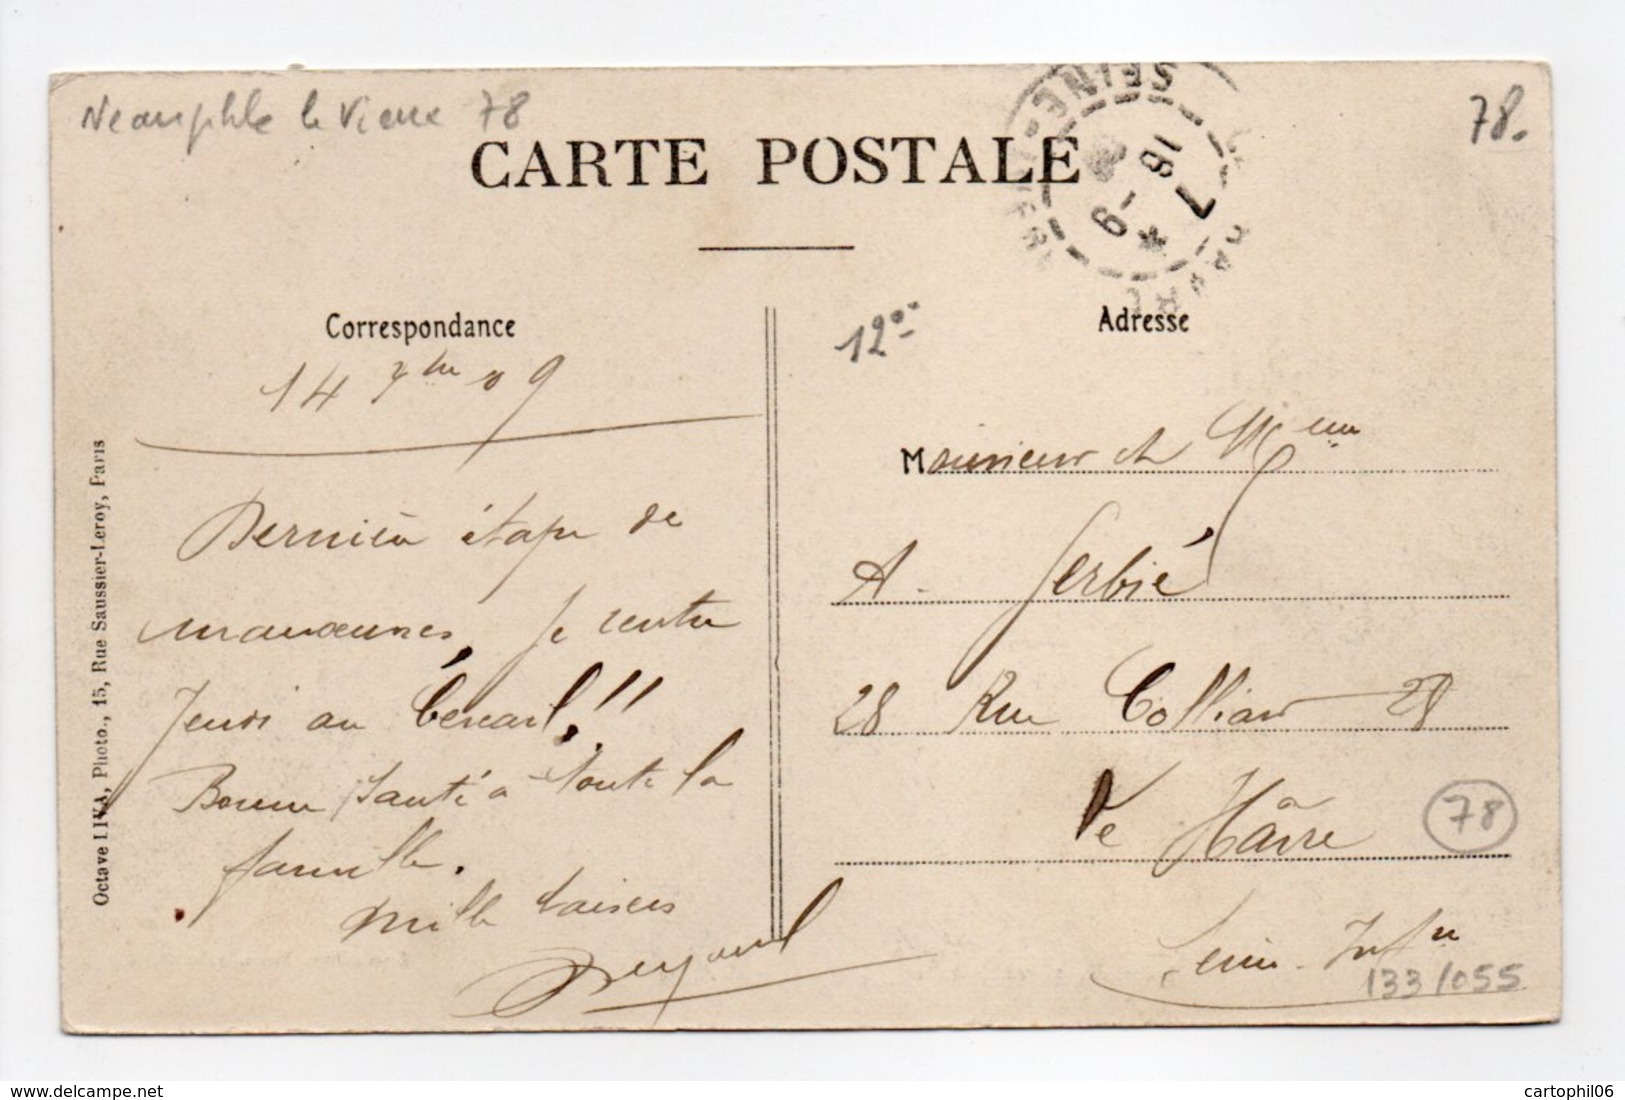 Neauphle le Vieux 78
78.
CARTE POSTALE
SEINE-INFRE
LE HAVRE
7
16 -9
Correspondance
14 7bre 09
Dernière étape de
manœuvres, je rentre
Jeudi au bercail!!!
Bonne santé à toute la
famille.
Mille baisers
Octave LIVA, Photo., 15, Rue Saussier-Leroy, Paris
12
Adresse
Monsieur et Mme
A. Gerbié
28 Rue Colliard 28
Le Hâvre
78
Seine-Infre
133/055
delcampe.net
cartophil06